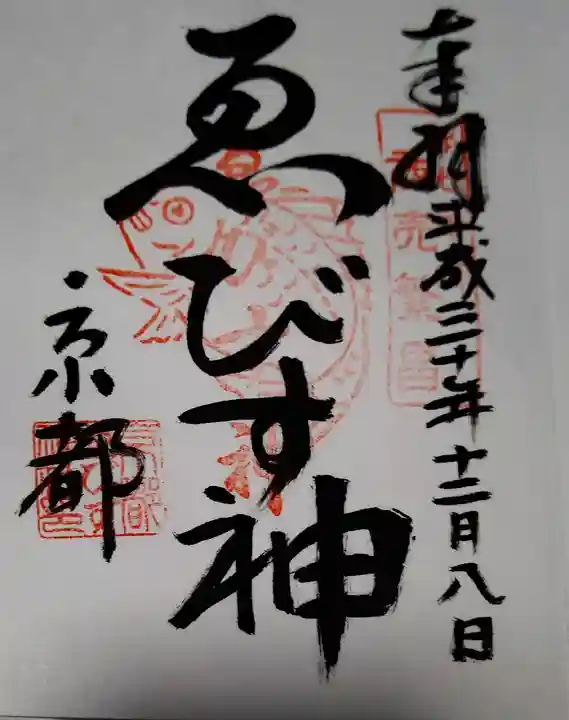 奉拝 平成三十年十二月八日
商売繁昌
ゑびす神
京都